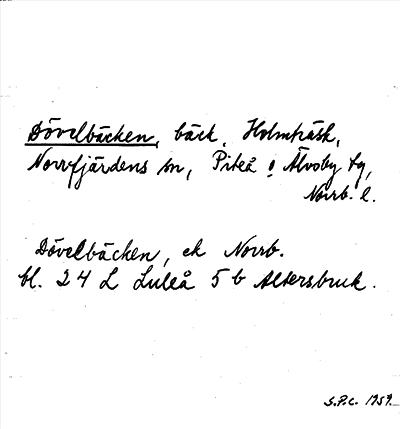 Dövelbäcken, bäck, Holmträsk,
Norrfjärdens sn, Piteå o Älvsby tg,
Norrb. l.
Dövelbäcken, ek Norrb.
bl. 24 L Luleå 5 b Altersbruk.
S.P.C. 1959.